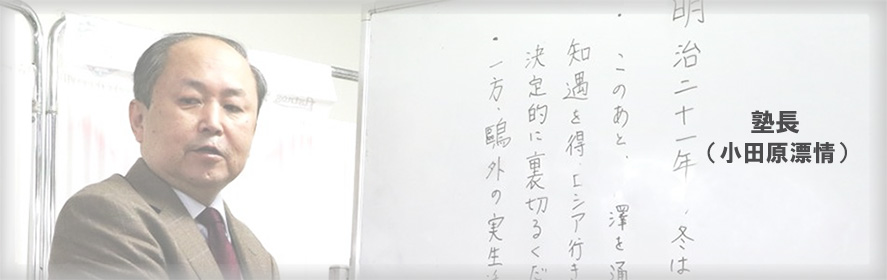 明治二十一年、冬は
・このあと、 澤を通
知遇を得、ロシア行き
決定的に裏切るくだ
・一方、鷗外の実生
塾長
（小田原漂情）